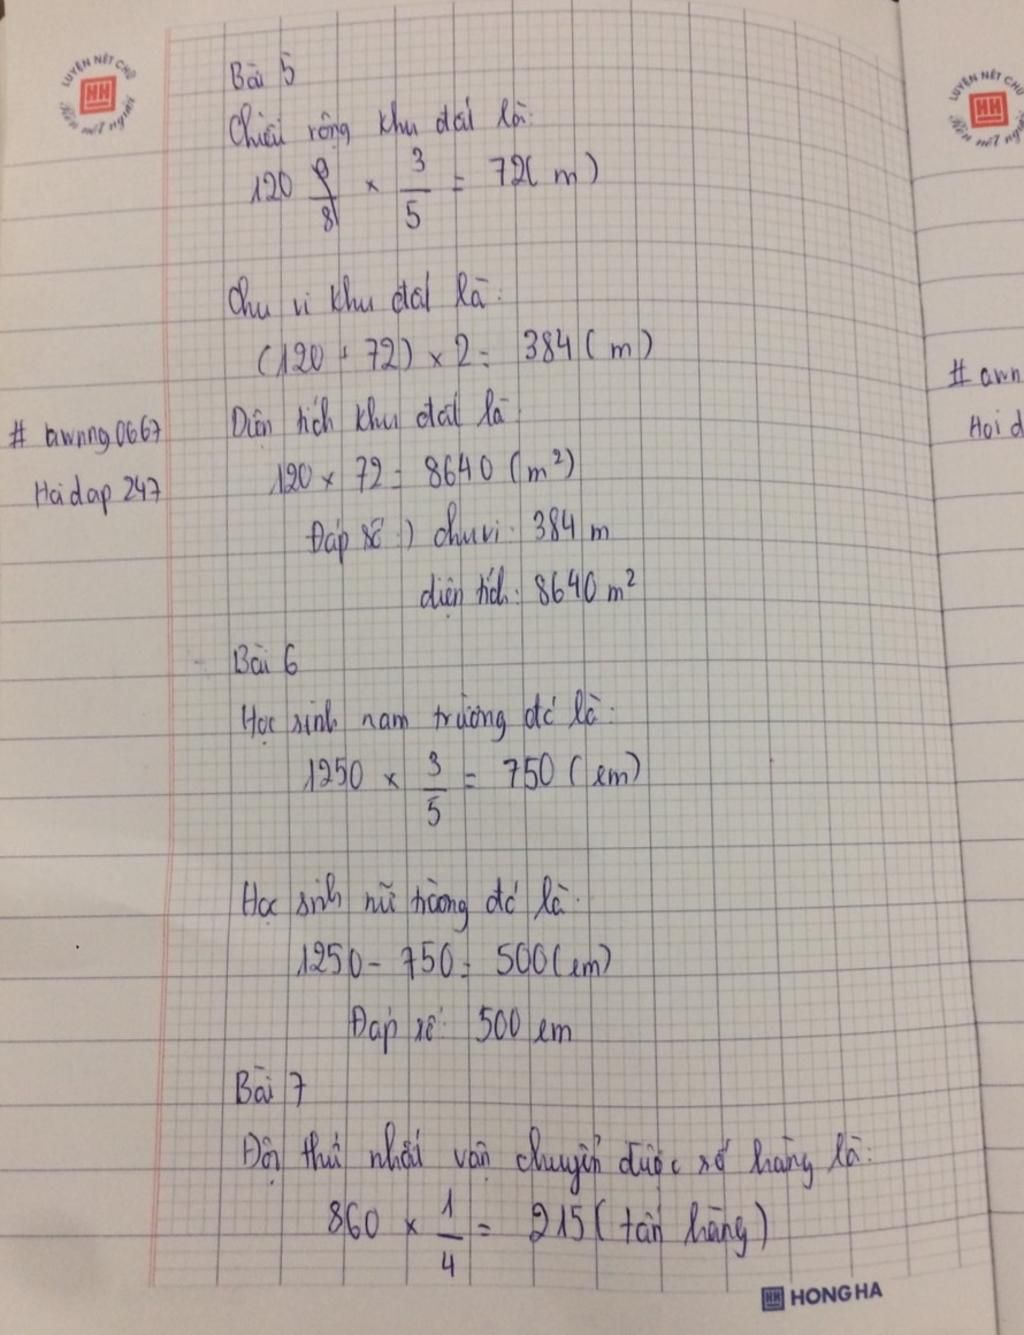 LUYỆN NÉT CHỮ
HH
Rèn nết người
LUYỆN NÉT CHỮ
HH
Rèn nết người
Bài 5
Chiều rộng khu đất là:
120 × 3/5 = 72( m )
Chu vi khu đất là:
(120 + 72) × 2 = 384 ( m )
# awnng0667
Hoidap 247
# awn
Hoi d
Diện tích khu đất là:
120 × 72 = 8640 (m²)
Đáp số :) chu vi: 384 m
diện tích: 8640 m²
Bài 6
Học sinh nam trường đó là:
1250 × 3/5 = 750 (em)
Học sinh nữ trường đó là:
1250 - 750 = 500 (em)
Đáp số: 500 em
Bài 7
Đội thứ nhất vận chuyển được số hàng là:
860 × 1/4 = 215 ( tấn hàng )
HH HONG HA